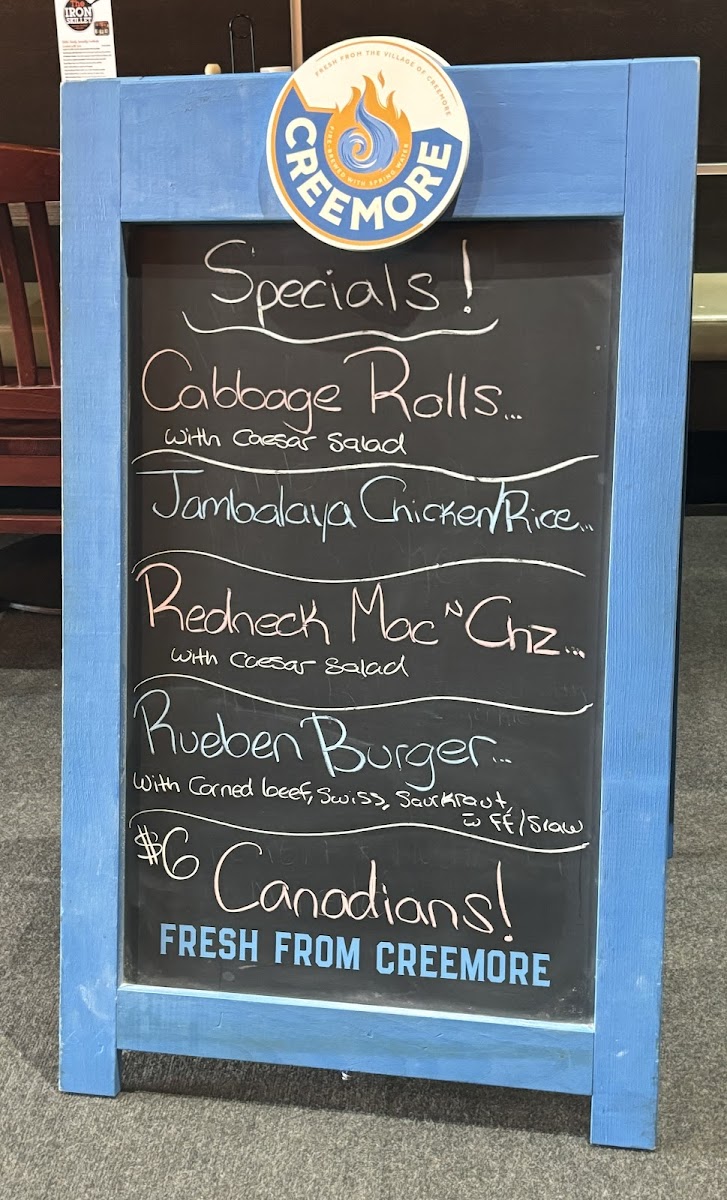 The
IRON
SKILLET
FRESH FROM THE VILLAGE OF CREEMORE
FIRE-BREWED WITH SPRING WATER
CREEMORE
Specials!
Cabbage Rolls...
with Caesar Salad
Jambalaya Chicken/Rice...
Redneck Mac "N" Chz...
with Caesar Salad
Rueben Burger...
with Corned beef, Swiss, Saurkraut,
w FF/Slaw
$6 Canadians!
FRESH FROM CREEMORE